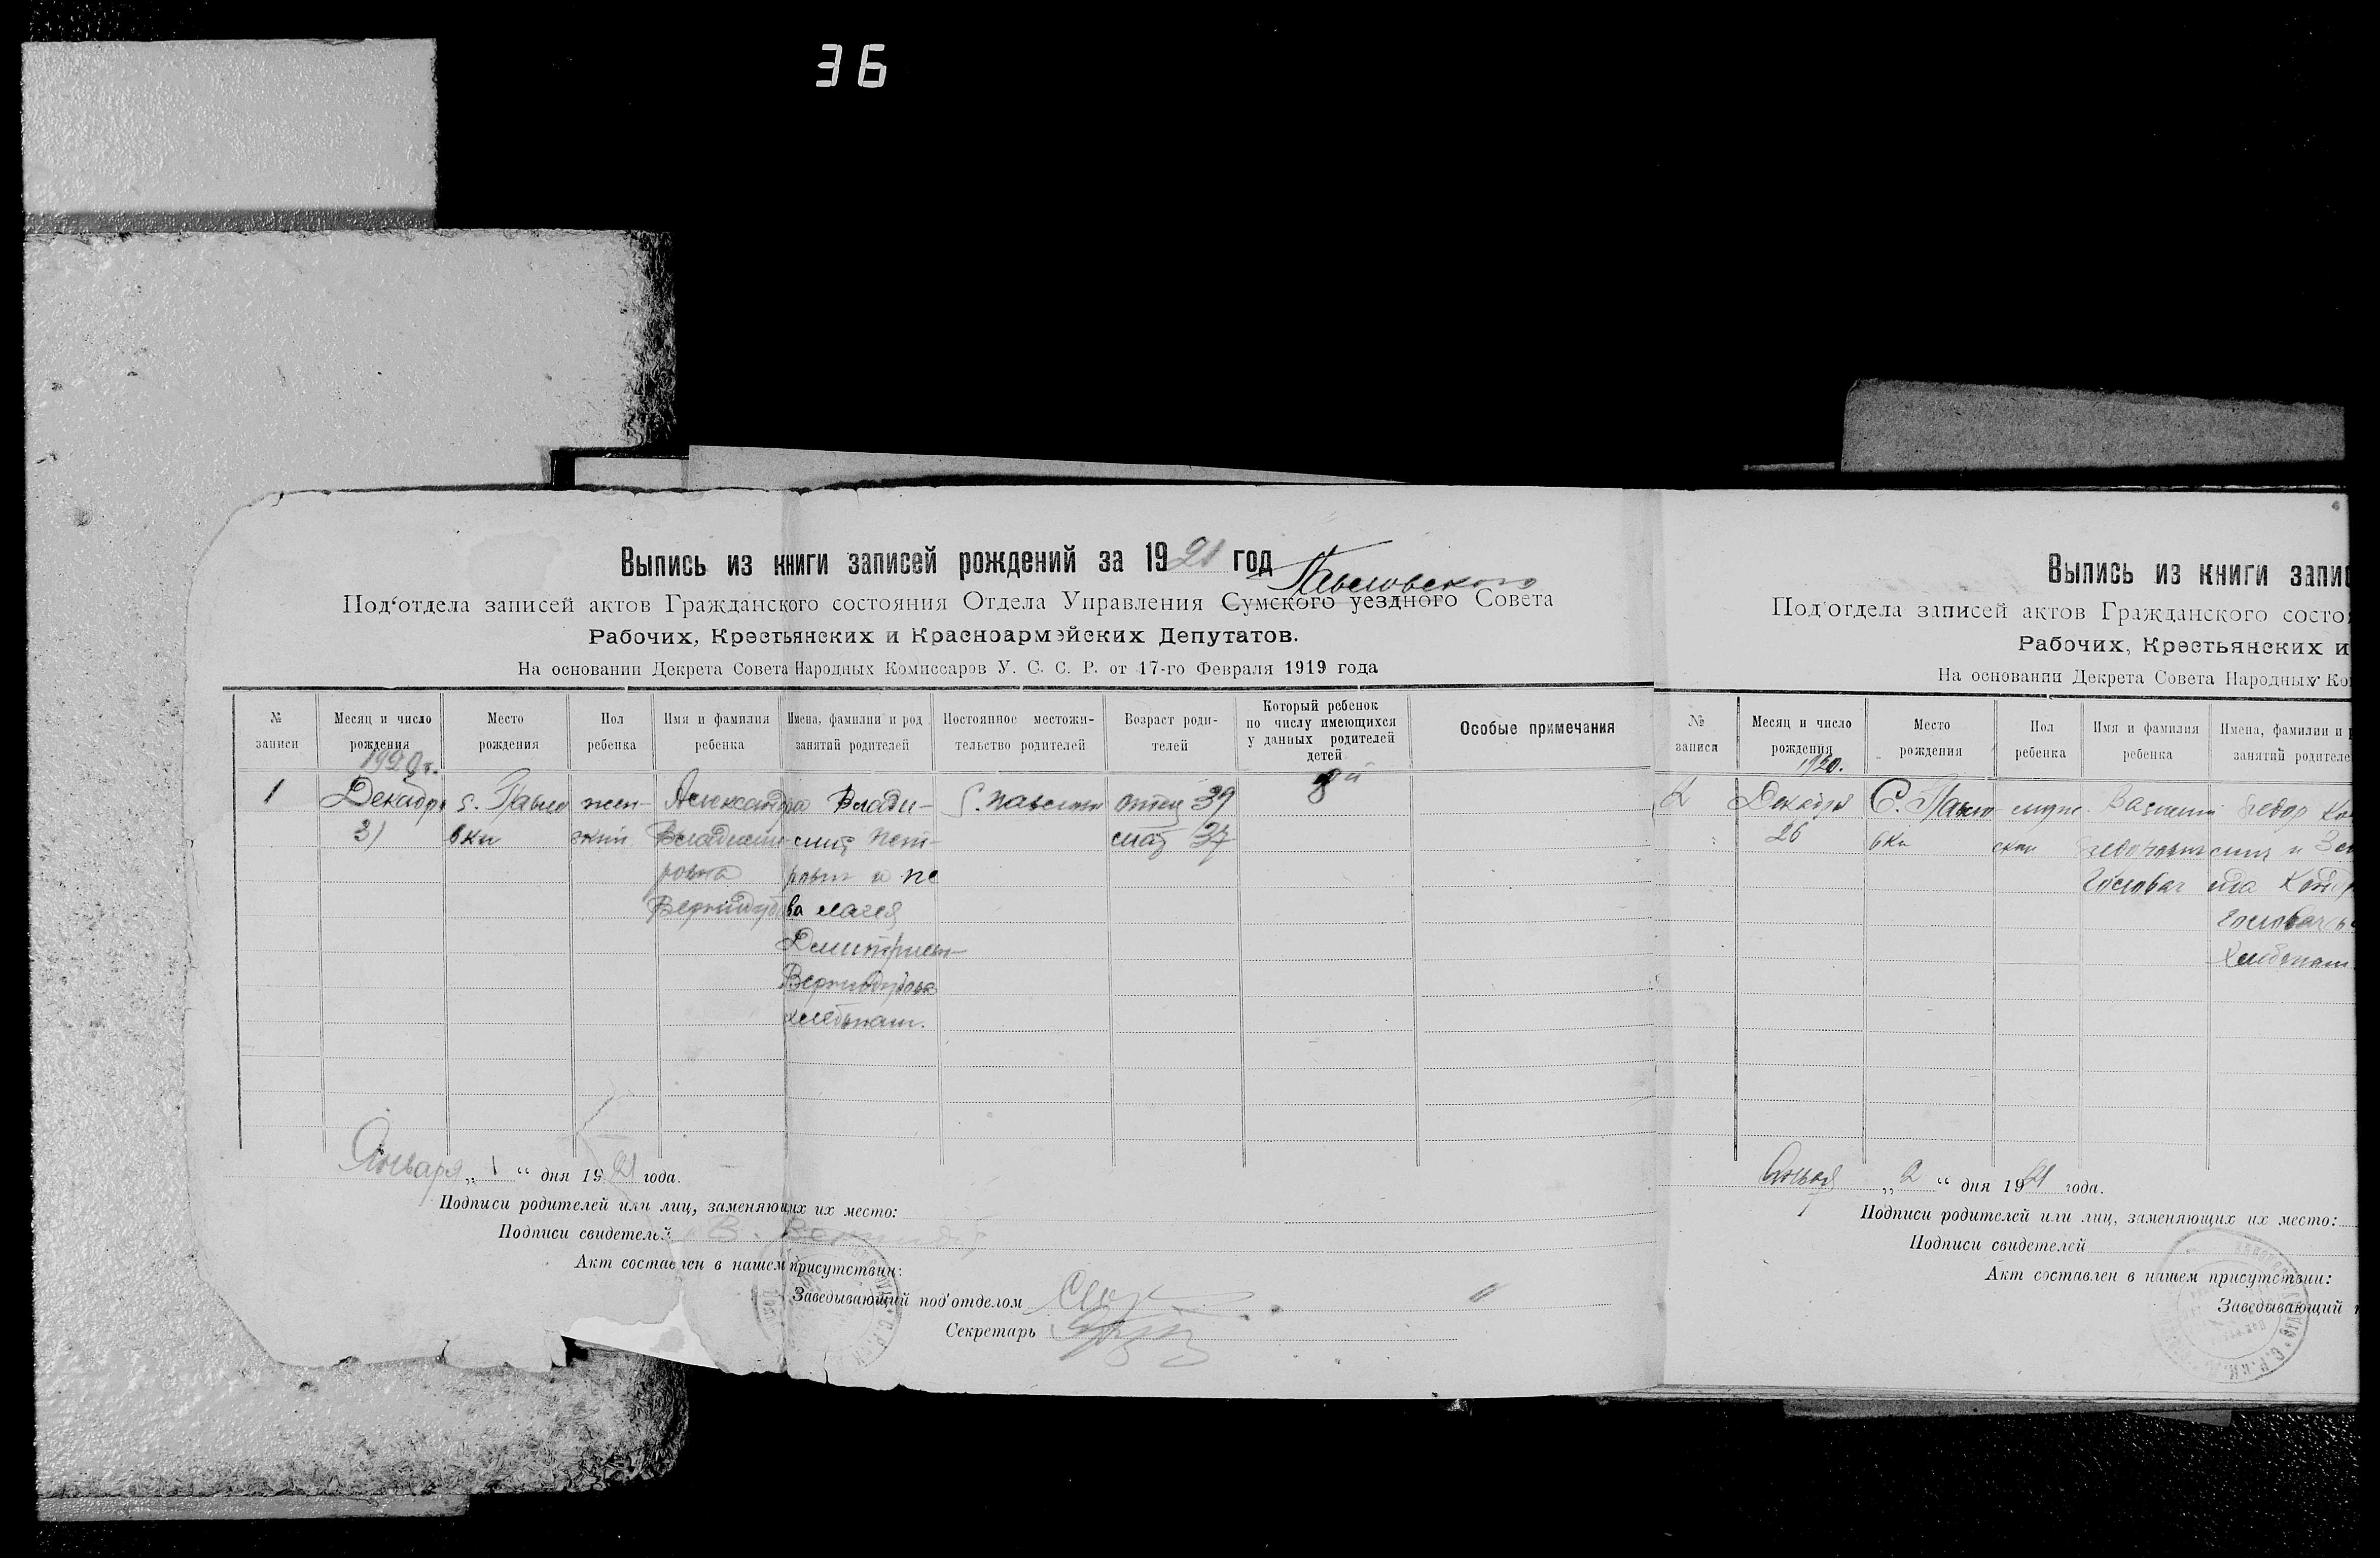 36
Выпись из книги записей рождений за 1921 год
Павловского
Под'отдела записей актов Гражданского состояния Отдела Управления Сумского уездного Совета
Рабочих, Крестьянских и Красноармейских Депутатов.
На основании Декрета Совета Народных Комиссаров У. С. С. Р. от 17-го Февраля 1919 года
№ записи
Месяц и число рождения
Место рождения
Пол ребенка
Имя и фамилия ребенка
Имена, фамилии и род занятий родителей
Постоянное местожительство родителей
Возраст родителей
Который ребенок по числу имеющихся у данных родителей детей
Особые примечания
1920г.
1 Декабря с. Павло жен- Александра Влади- отец 39 8й
31 вки ский Владими- мир Пет- мать 37
ровна рович и
Вернидуб
Дмитриев-
Вернидубова
хлебопаш.
Января „ 1 “ дня 1921 года.
Подписи родителей или лиц, заменяющих их место:
Подписи свидетелей В. Вернидуб
Акт составлен в нашем присутствии:
Заведывающий под'отделом
Секретарь
Выпись из книги запис
Под'отдела записей актов Гражданского состо
Рабочих, Крестьянских и
На основании Декрета Совета Народных Ко
№ записи
Месяц и число рождения
Место рождения
Пол ребенка
Имя и фамилия ребенка
Имена, фамилии и р занятий родителе
1920.
2 Декабря С. Павло муж. Василий Федор
26 вки ски Федорович
Головач
хлебопаш
Января „ 2 “ дня 1921 года.
Подписи родителей или лиц, заменяющих их место:
Подписи свидетелей
Акт составлен в нашем присутствии:
Заведывающий